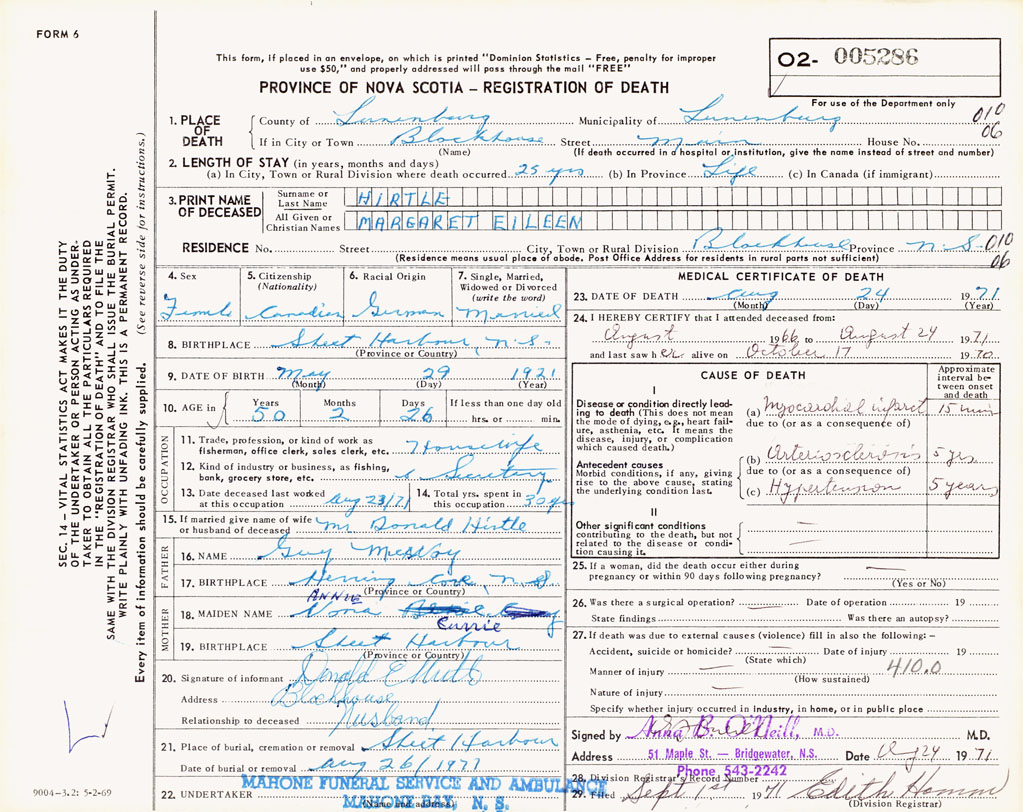 FORM 6
This form, if placed in an envelope, on which is printed "Dominion Statistics – Free, penalty for improper
use $50," and properly addressed will pass through the mail "FREE"
O2- 005286
PROVINCE OF NOVA SCOTIA – REGISTRATION OF DEATH
For use of the Department only
1. PLACE OF DEATH County of Lunenburg Municipality of Lunenburg 010
If in City or Town Blockhouse Street Main House No. 06
(Name) (If death occurred in a hospital or institution, give the name instead of street and number)
2. LENGTH OF STAY (in years, months and days)
(a) In City, Town or Rural Division where death occurred 25 yrs (b) In Province Life (c) In Canada (if immigrant)
3. PRINT NAME OF DECEASED Surname or Last Name HIRTLE
All Given or Christian Names MARGARET EILEEN
RESIDENCE No. Street City, Town or Rural Division Blockhouse Province N.S. 010
(Residence means usual place of abode. Post Office Address for residents in rural parts not sufficient) 06
4. Sex Female
5. Citizenship (Nationality) Canadian
6. Racial Origin German
7. Single, Married, Widowed or Divorced (write the word) Married
8. BIRTHPLACE Sheet Harbour, N.S.
(Province or Country)
9. DATE OF BIRTH May 29 1921
(Month) (Day) (Year)
10. AGE in Years 50 Months 2 Days 26 If less than one day old hrs. or min.
OCCUPATION
11. Trade, profession, or kind of work as fisherman, office clerk, sales clerk, etc. Housewife
12. Kind of industry or business, as fishing, bank, grocery store, etc. & Secretary
13. Date deceased last worked at this occupation Aug 23/71
14. Total yrs. spent in this occupation 30 yrs
15. If married give name of wife or husband of deceased Mr. Donald Hirtle
FATHER
16. NAME Guy
17. BIRTHPLACE Herring Cove, N.S.
(Province or Country)
MOTHER
ANNIE
18. MAIDEN NAME Nora
Currie
19. BIRTHPLACE Sheet Harbour
(Province or Country)
20. Signature of informant Donald E Hirtle
Address Blockhouse
Relationship to deceased Husband
21. Place of burial, cremation or removal Sheet Harbour
Date of burial or removal Aug 26/1971
22. UNDERTAKER MAHONE FUNERAL SERVICE AND AMBULANCE
(Name and address) MAHONE BAY, N. S.
MEDICAL CERTIFICATE OF DEATH
23. DATE OF DEATH Aug 24 1971
(Month) (Day) (Year)
24. I HEREBY CERTIFY that I attended deceased from:
August 1966 to August 24 1971
and last saw her alive on October 17 1970
CAUSE OF DEATH
Approximate interval between onset and death
I
Disease or condition directly leading to death (This does not mean the mode of dying, e.g., heart failure, asthenia, etc. It means the disease, injury, or complication which caused death.)
(a) Myocardial infarct 15 min
due to (or as a consequence of)
Antecedent causes
Morbid conditions, if any, giving rise to the above cause, stating the underlying condition last.
(b) Arteriosclerosis 5 yrs
due to (or as a consequence of)
(c) Hypertension 5 years
II
Other significant conditions contributing to the death, but not related to the disease or condition causing it.
25. If a woman, did the death occur either during pregnancy or within 90 days following pregnancy?
(Yes or No)
26. Was there a surgical operation? Date of operation 19
State findings Was there an autopsy?
27. If death was due to external causes (violence) fill in also the following: –
Accident, suicide or homicide? Date of injury 19
(State which)
Manner of injury 410.0
(How sustained)
Nature of injury
Specify whether injury occurred in Industry, in home, or in public place
Signed by Anna B. O'Neill, M.D. M.D.
Address 51 Maple St. – Bridgewater, N.S. Date Aug 24 1971
Phone 543-2242
28. Division Registrar's Record Number
29. Filed Sept 1st 1971 Edith Hamm
(Division Registrar)
SEC. 14 – VITAL STATISTICS ACT MAKES IT THE DUTY
OF THE UNDERTAKER OR PERSON ACTING AS UNDER-
TAKER TO OBTAIN ALL THE PARTICULARS REQUIRED
IN THE "REGISTRATION OF DEATH" AND TO FILE THE
SAME WITH THE DIVISION REGISTRAR WHO SHALL ISSUE THE BURIAL PERMIT.
WRITE PLAINLY WITH UNFADING INK. THIS IS A PERMANENT RECORD.
Every item of information should be carefully supplied. (See reverse side for instructions.)
9004-3.2: 5-2-69